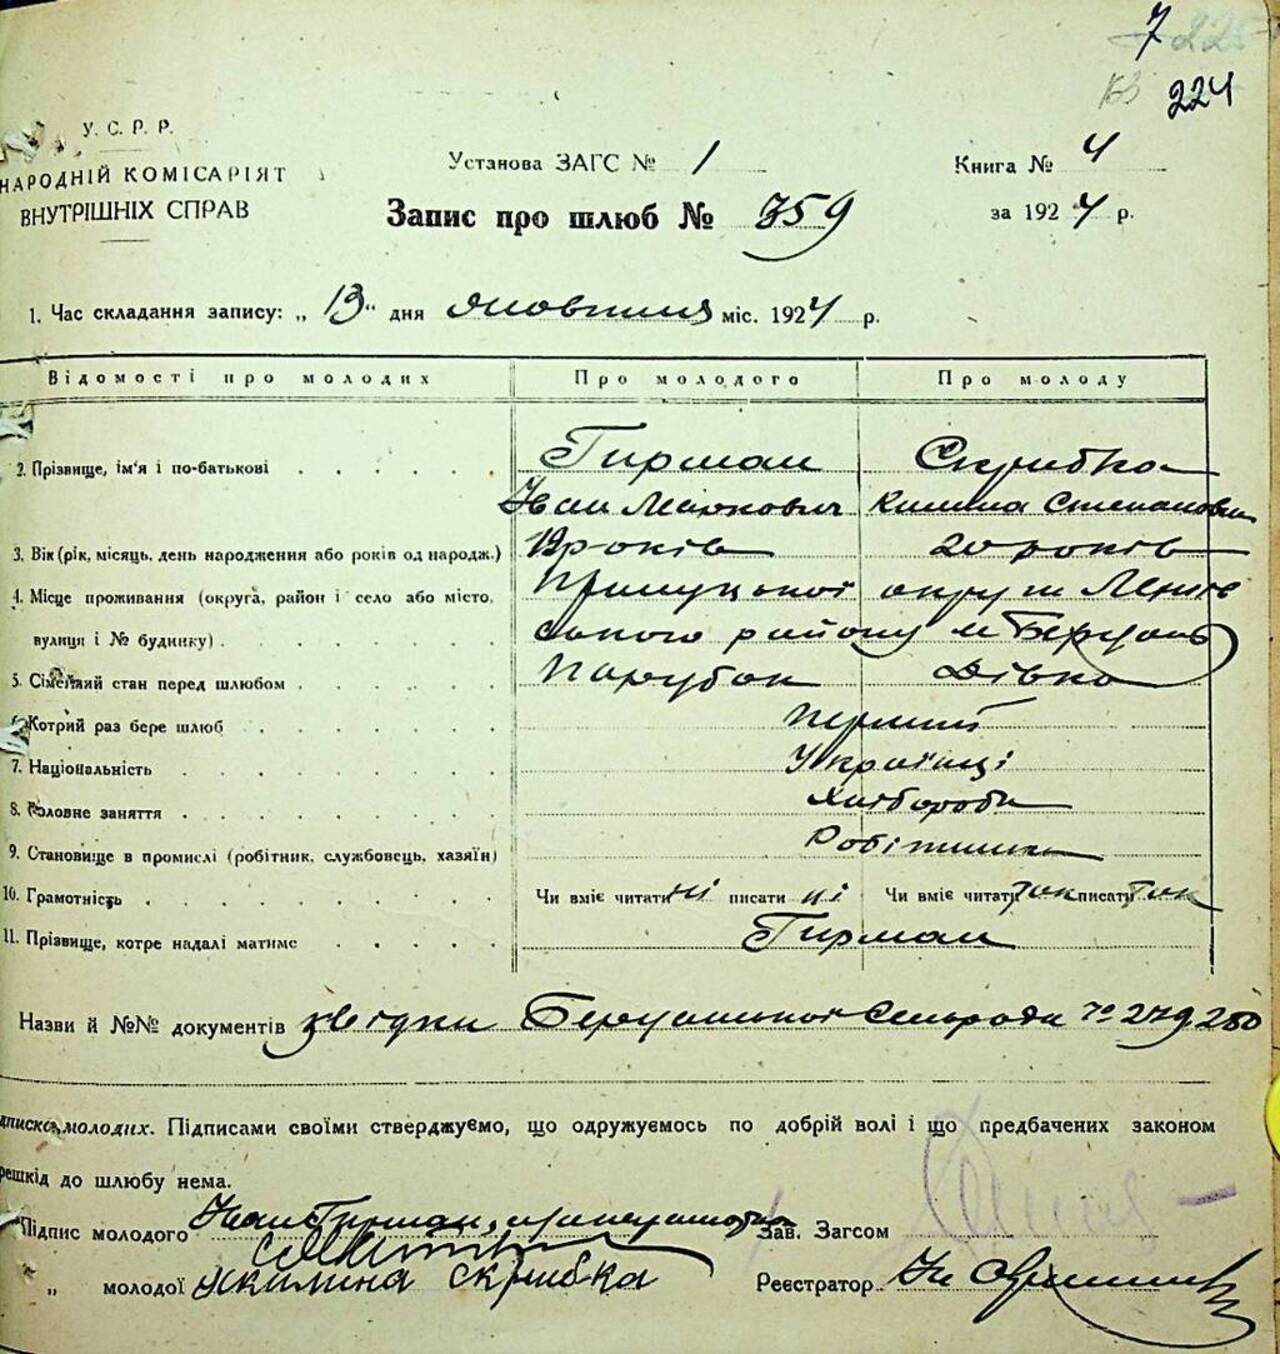 7 225
163 224
У. С. Р. Р.
НАРОДНІЙ КОМІСАРІЯТ
ВНУТРІШНІХ СПРАВ
Установа ЗАГС № 1
Книга № 4
Запис про шлюб № 359
за 1924 р.
1. Час складання запису: „13“ дня жовтня міс. 1924 р.
Відомості про молодих Про молодого Про молоду
2. Прізвище, ім'я і по-батькові Гирман Скрибка
Іван Маркович Килина Степановна
3. Вік (рік, місяць, день народження або років од народж.) 19 років 20 років
4. Місце проживання (округа, район і село або місто, Прилуцької округи
вулиця і № будинку) ського району м
5. Сімейний стан перед шлюбом Парубок Дівка
6. Котрий раз бере шлюб перший
7. Національність Українці
8. Головне заняття Хлібороби
9. Становище в промислі (робітник, службовець, хазяїн)
10. Грамотність Чи вміє читати ні писати ні Чи вміє читати так писати так
11. Прізвище, котре надалі матиме Гирман
Назви й №№ документів звідки Сельради № 279 280
дписка молодих. Підписами своїми стверджуємо, що одружуємось по добрій волі і що предбачених законом
решкід до шлюбу нема.
Підпис молодого Іван Гирман, а неграмотн Зав. Загсом
„ молодої Якилина скрибка Реєстратор